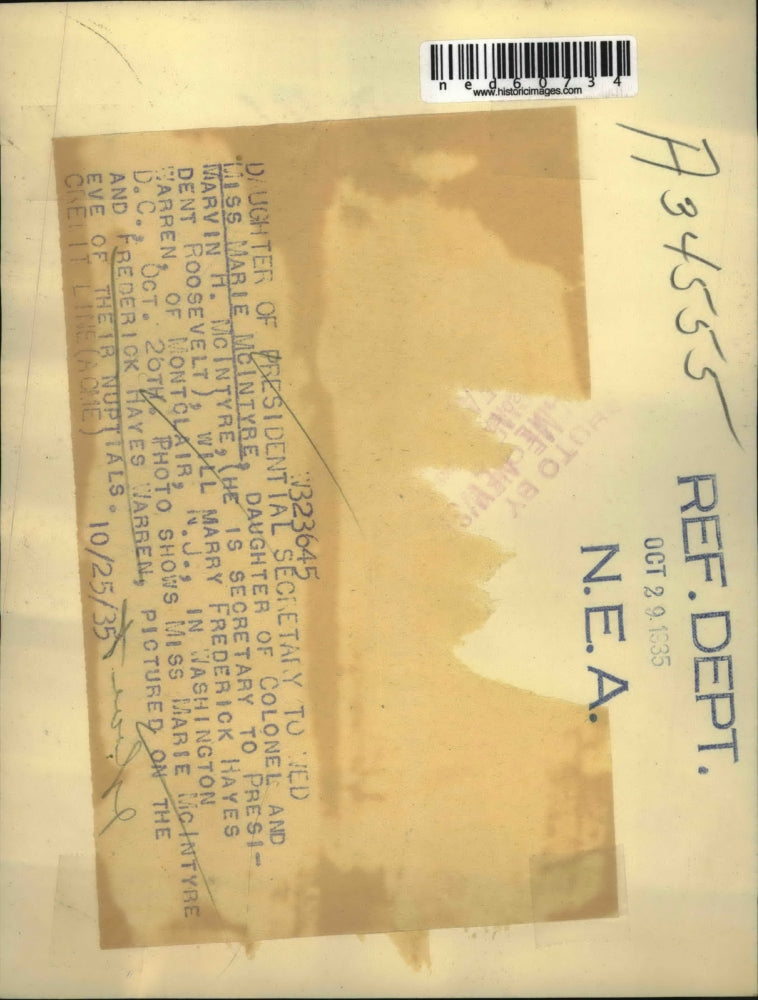 ned60734
www.historicimages.com
A 34555
REF. DEPT.
OCT 29 1935
N.E.A.
PHOTO BY
W323645
DAUGHTER OF PRESIDENTIAL SECRETARY TO WED
MISS MARIE MCINTYRE, DAUGHTER OF COLONEL AND
MARVIN H. MCINTYRE, (HE IS SECRETARY TO PRESI-
DENT ROOSEVELT), WILL MARRY FREDERICK HAYES
WARREN, OF MONTCLAIR, N.J., IN WASHINGTON
D.C., OCT. 26TH. PHOTO SHOWS MISS MARIE MCINTYRE
AND FREDERICK HAYES WARREN, PICTURED ON THE
EVE OF THEIR NUPTIALS. 10/25/35
CREDIT LINE (ACME)